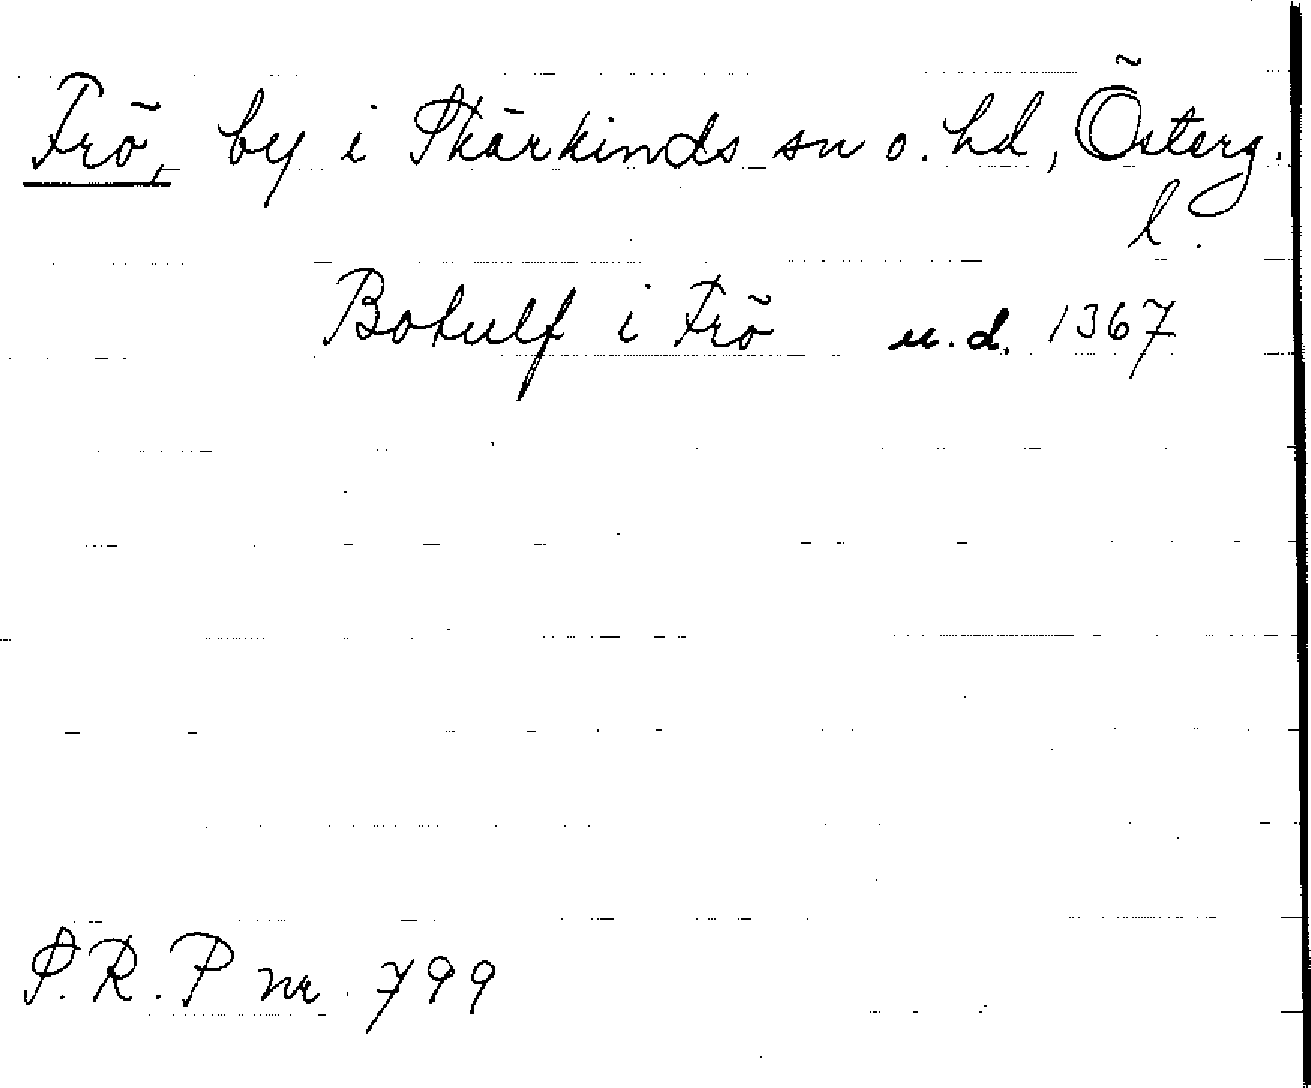 Frö, by i Skärkinds sn o. hd, Österg.
l.
Botulf i Frö u.d. 1367
S.R.P nr. 799